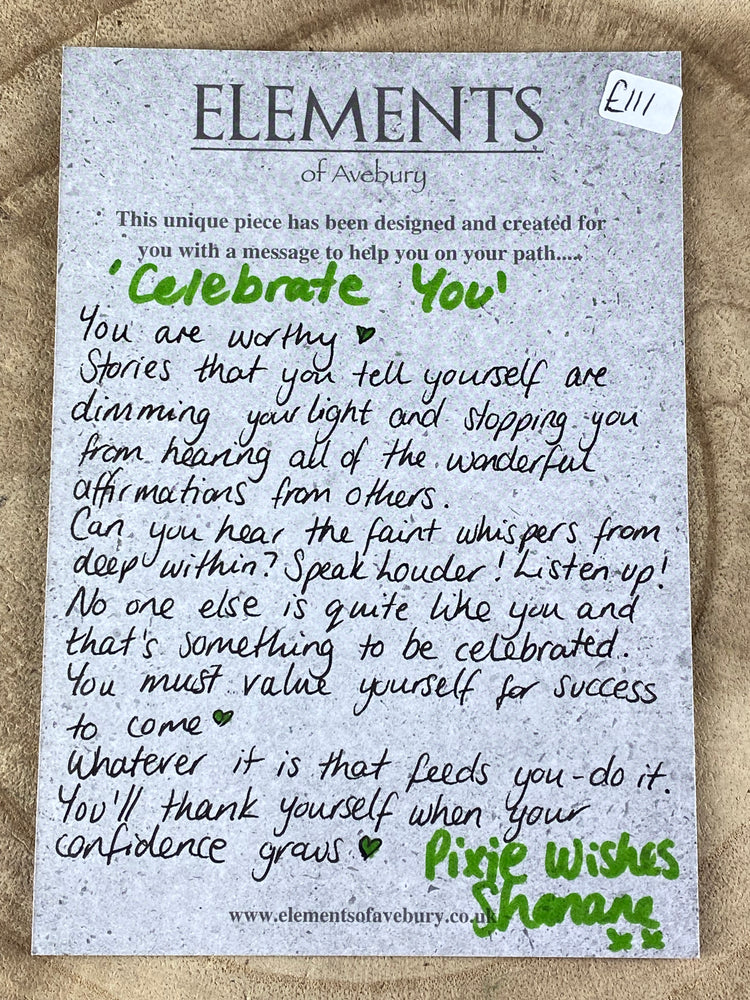 ELEMENTS
£111
of Avebury
This unique piece has been designed and created for
you with a message to help you on your path....
'Celebrate You'
You are worthy
Stories that you tell yourself are
dimming your light and stopping you
from hearing all of the wonderful
affirmations from others.
Can you hear the faint whispers from
deep within? Speak Louder! Listen up!
No one else is quite like you and
that's something to be celebrated.
You must value yourself for success
to come
Whatever it is that feeds you - do it.
You'll thank yourself when your
confidence grows
Pixie Wishes
www.elementsofavebury.co.uk
xx